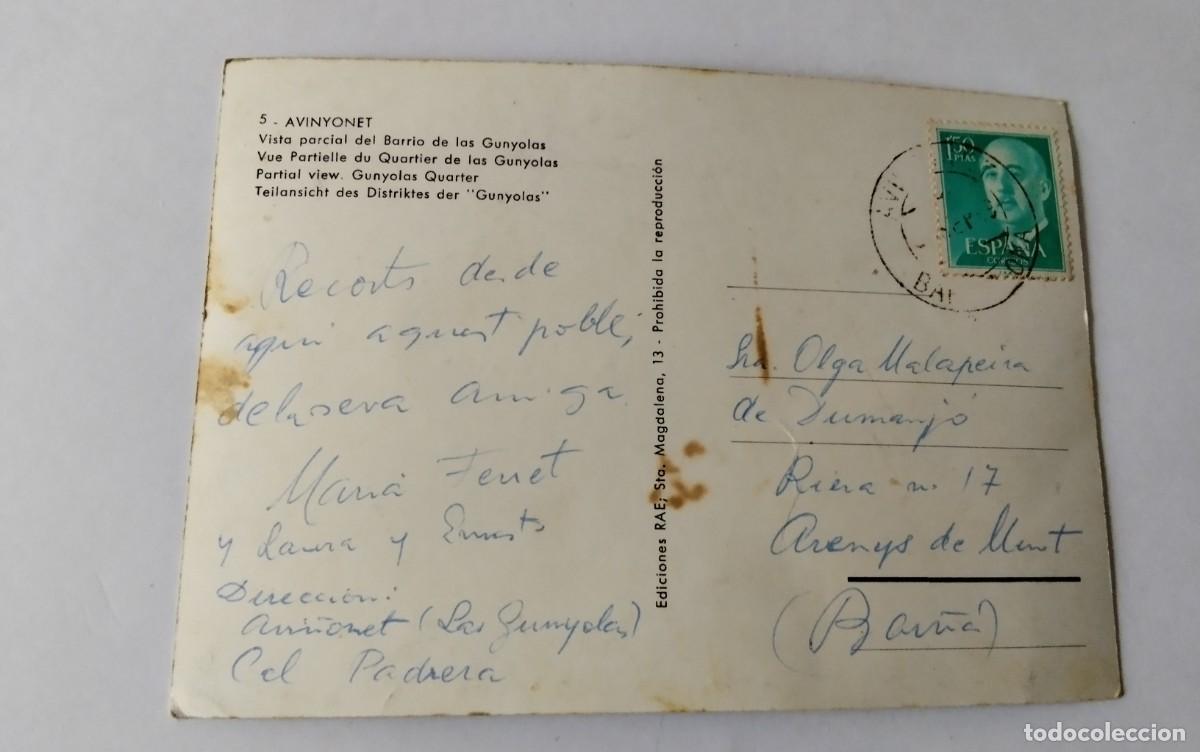 5 - AVINYONET
Vista parcial del Barrio de las Gunyolas
Vue Partielle du Quartier de las Gunyolas
Partial view. Gunyolas Quarter
Teilansicht des Distriktes der "Gunyolas"
Recorts desde
aqui aquest poble,
de la seva amiga.
Maria Ferret
y Laura y Ernesto
Dirección:
Aviñonet (Las Gunyolas)
Cal Padrera
Ediciones RAE; Sta. Magdalena, 13 - Prohibida la reproducción
1'50
PTAS
ESPAÑA
CORREOS
Sra. Olga Malapeira
de Dumanjó
Riera n. 17
Arenys de Munt
(Barña)
todocoleccion